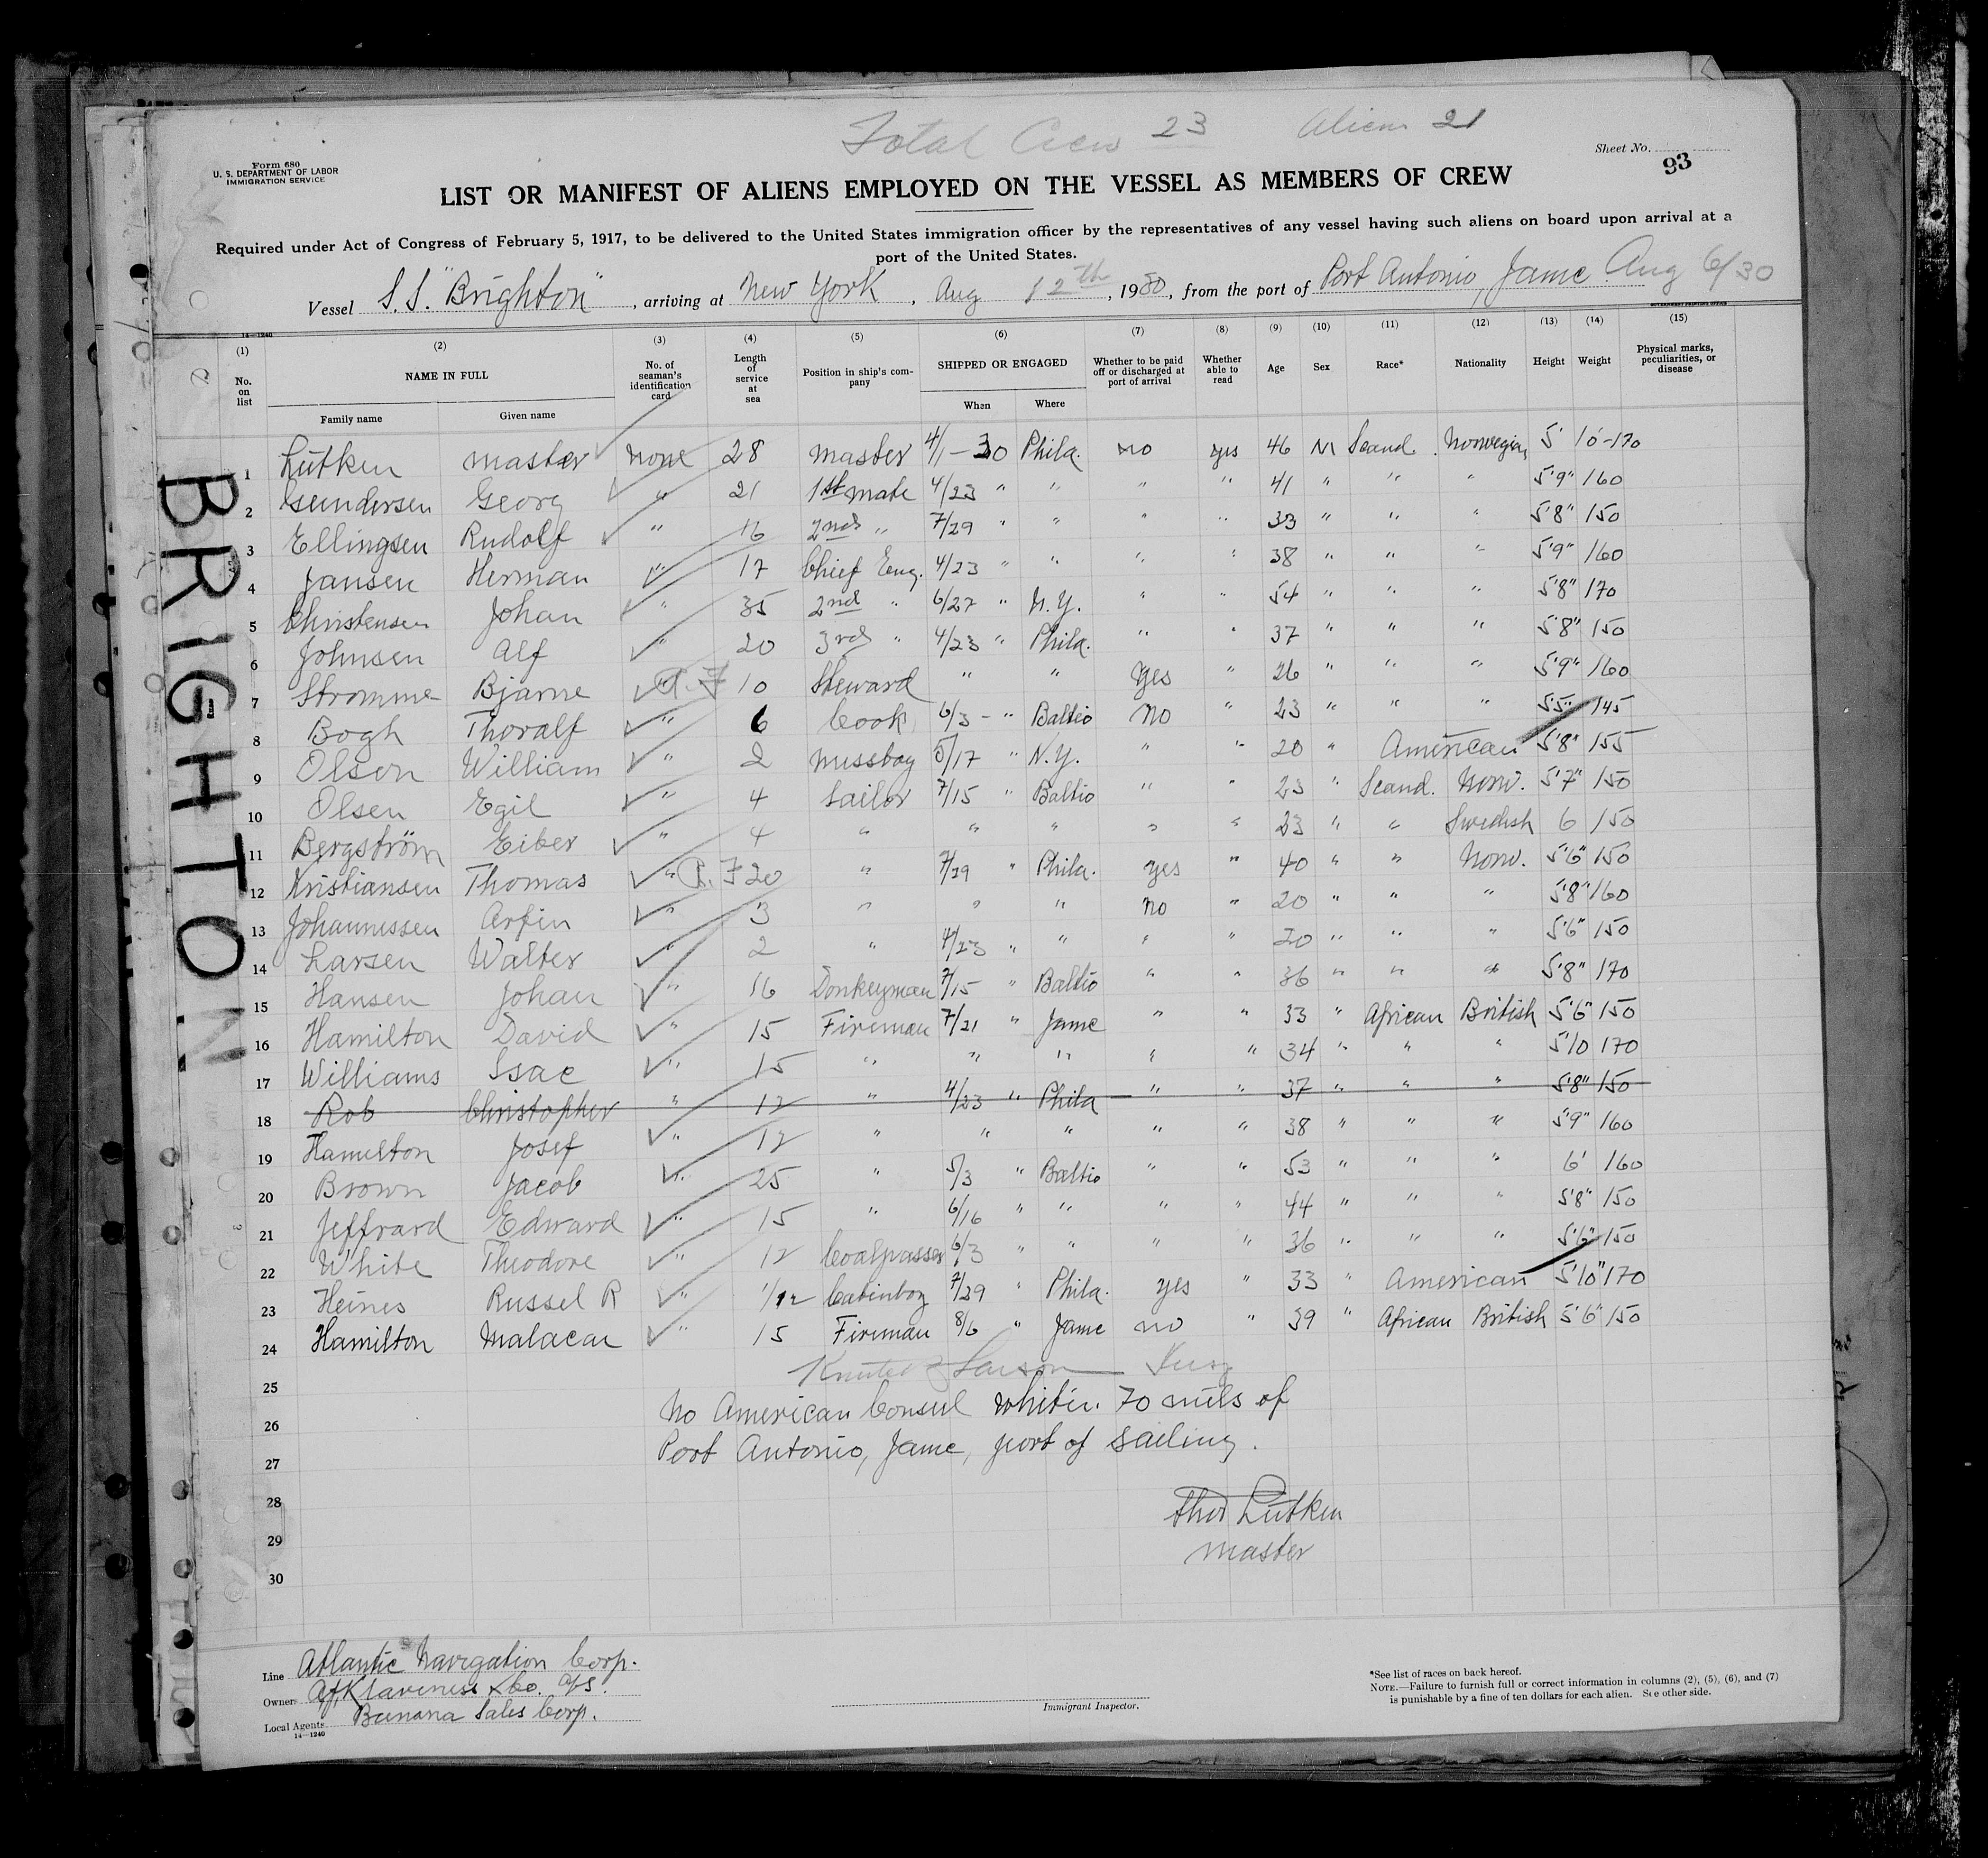 Total Crew 23 Aliens 21
Form 680
U. S. DEPARTMENT OF LABOR
IMMIGRATION SERVICE
Sheet No.
93
LIST OR MANIFEST OF ALIENS EMPLOYED ON THE VESSEL AS MEMBERS OF CREW
Required under Act of Congress of February 5, 1917, to be delivered to the United States immigration officer by the representatives of any vessel having such aliens on board upon arrival at a
port of the United States.
Vessel S.S. "Brighton", arriving at New York, Aug 12th, 1930, from the port of Port Antonio, Jame Aug 6/30
14—1240
GOVERNMENT PRINTING OFFICE
(1) (2) (3) (4) (5) (6) (7) (8) (9) (10) (11) (12) (13) (14) (15)
No. on list NAME IN FULL No. of seaman's identification card Length of service at sea Position in ship's company SHIPPED OR ENGAGED Whether to be paid off or discharged at port of arrival Whether able to read Age Sex Race* Nationality Height Weight Physical marks, peculiarities, or disease
Family name Given name When Where
BRIGHTON
1 Lütken master none 28 master 4/1-30 Phila. no yes 46 M Scand. Norwegian 5' 10-170
2 Gundersen Georg " 21 1st mate 4/23 " " " " 41 " " " 5'9" 160
3 Ellingsen Rudolf " 16 2nd " 7/29 " " " " 33 " " " 5'8" 150
4 Jansen Herman " 17 Chief Eng. 4/23 " " " " 38 " " " 5'9" 160
5 Christensen Johan " 35 2nd " 6/27 " N.Y. " " 54 " " " 5'8" 170
6 Johnsen Alf " 20 3rd " 4/23 " Phila. " " 37 " " " 5'8" 150
7 Stromme Bjarne " 10 Steward " " yes " 26 " " " 5'9" 160
8 Bogh Thoralf " 6 Cook 6/3 - " Baltio no " 23 " " " 5'5" 145
9 Olson William " 2 messboy 5/17 " N.Y. " " 20 " American 5'8" 155
10 Olsen Egil " 4 Sailor 7/15 " Baltio " " 23 " Scand. Norw. 5'7" 150
11 Bergström Eiber " 4 " " " " " 23 " " Swedish 6 150
12 Kristiansen Thomas " 20 " 7/29 " Phila. yes " 40 " " Norw. 5'6" 150
13 Johannessen Arfin " 3 " " " no " 20 " " " 5'8" 160
14 Larsen Walter " 2 " 4/23 " " " " 20 " " " 5'6" 150
15 Hansen Johan " 16 Donkeyman 7/15 " Baltio " " 36 " " " 5'8" 170
16 Hamilton David " 15 Fireman 7/21 " Jame " " 33 " African British 5'6" 150
17 Williams Isac " 15 " " " " " 34 " " " 5'10 170
18 Rob Christopher " 12 " 4/23 " Phila " " 37 " " " 5'8" 150
19 Hamilton Josef " 12 " " " " " 38 " " " 5'9" 160
20 Brown Jacob " 25 " 5/3 " Baltio " " 53 " " " 6' 160
21 Jeffrard Edward " 15 " 6/16 " " " " 44 " " " 5'8" 150
22 White Theodore " 12 Coalpasser 6/3 " " " " 36 " " " 5'6" 150
23 Heines Russel R " 1/12 Cabinboy 7/29 " Phila. yes " 33 " American 5'10" 170
24 Hamilton Malacar " 15 Fireman 8/6 " Jame no " 39 " African British 5'6" 150
25
26 No American Consul whitin 70 mils of
27 Port Antonio, Jame, port of sailing.
28
29
30
Thos Lütken
master
Line Atlantic Navigation Corp.
Owners A.F. Klaveness & Co. A/S.
Local Agents Banana Sales Corp.
14—1240
Immigrant Inspector.
*See list of races on back hereof.
NOTE.—Failure to furnish full or correct information in columns (2), (5), (6), and (7)
is punishable by a fine of ten dollars for each alien. See other side.